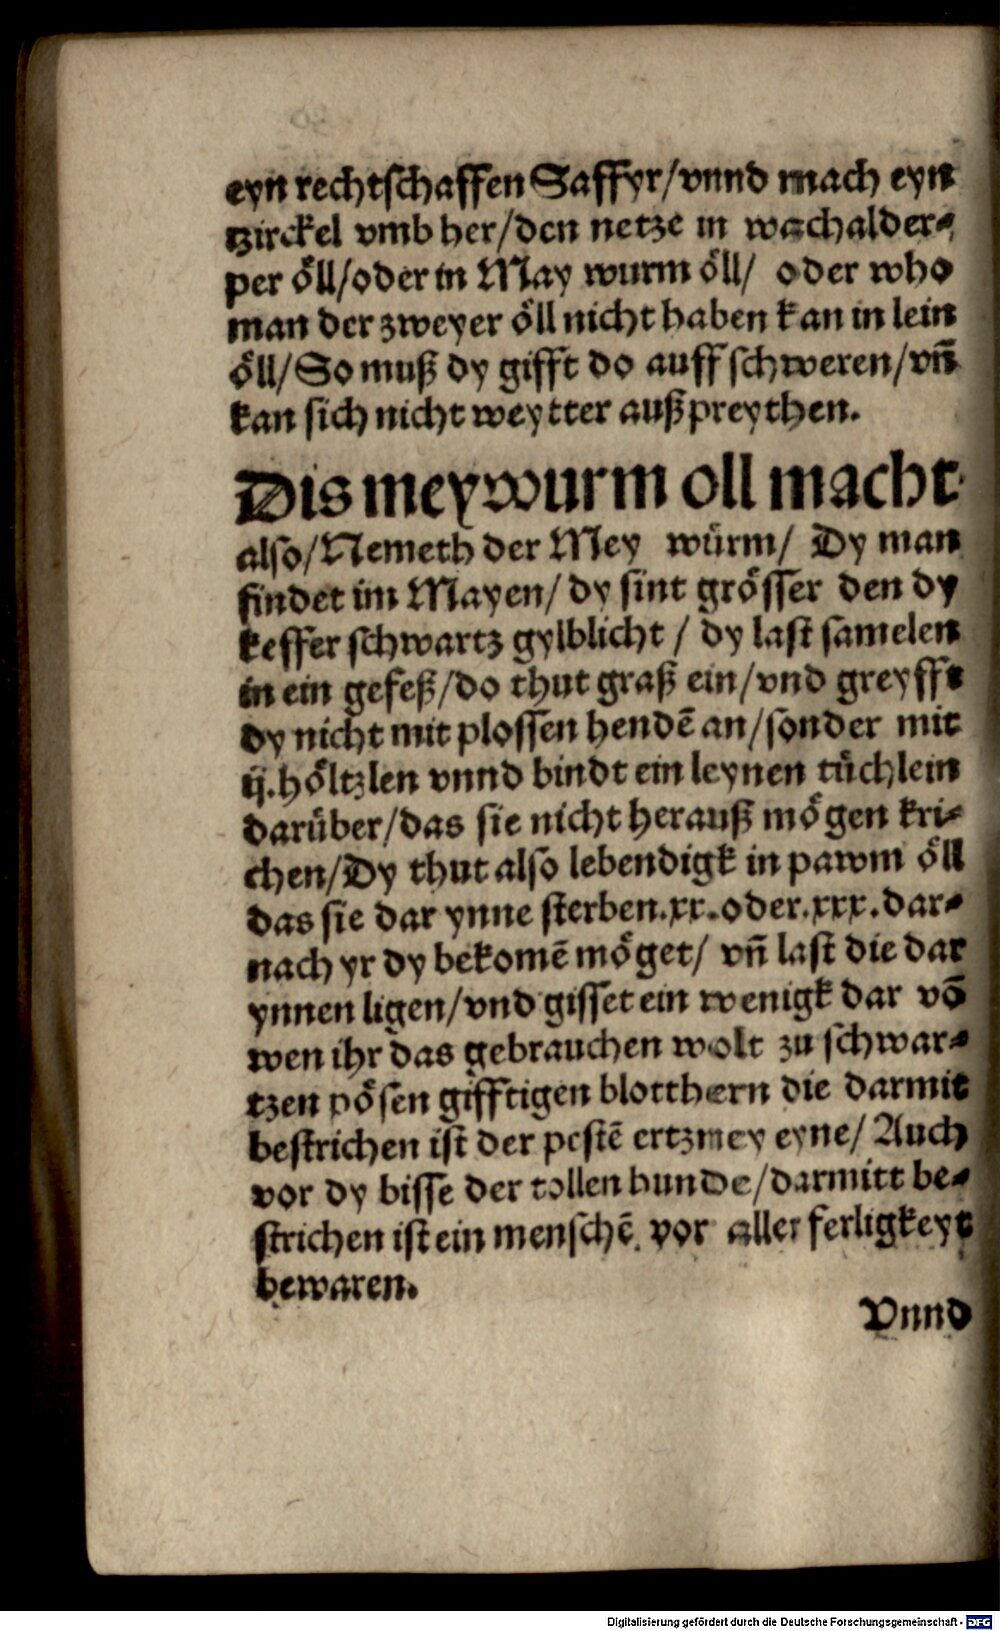 eyn rechtschaffen Saffyr/vnnd mach eyn
tzirckel vmb her/den netze in wachalder⸗
per oͤll/oder in May wurm oͤll/ oder who
man der zweyer oͤll nicht haben kan in lein
oͤll/So muß dy gifft do auff schweren/vñ
kan sich nicht weytter außpreythen.
Dis meywurm oll macht
also/Nemeth der Mey wuͤrm/ Dy man
findet im Mayen/dy sint groͤsser den dy
keffer schwartz gylblicht / dy last samelen
in ein gefeß/do thut graß ein/vnd greyfft
dy nicht mit plossen hendē an/sonder mit
ij.hoͤltzlen vnnd bindt ein leynen tuͤchlein
daruͤber/das sie nicht herauß moͤgen kri⸗
chen/Dy thut also lebendigk in pawm oͤll
das sie dar ynne sterben.xx.oder.xxx.dar⸗
nach yr dy bekomē moͤget/ vñ last die dar
ynnen ligen/vnd gisset ein wenigk dar vō
wen ihr das gebrauchen wolt zu schwar⸗
tzen poͤsen gifftigen blotthern die darmit
bestrichen ist der pestē ertzmey eyne/ Auch
vor dy bisse der tollen hunde/darmitt be⸗
strichen ist ein menschē vor aller ferligkeyt
bewaren.
Vnnd
Digitalisierung gefördert durch die Deutsche Forschungsgemeinschaft - DFG